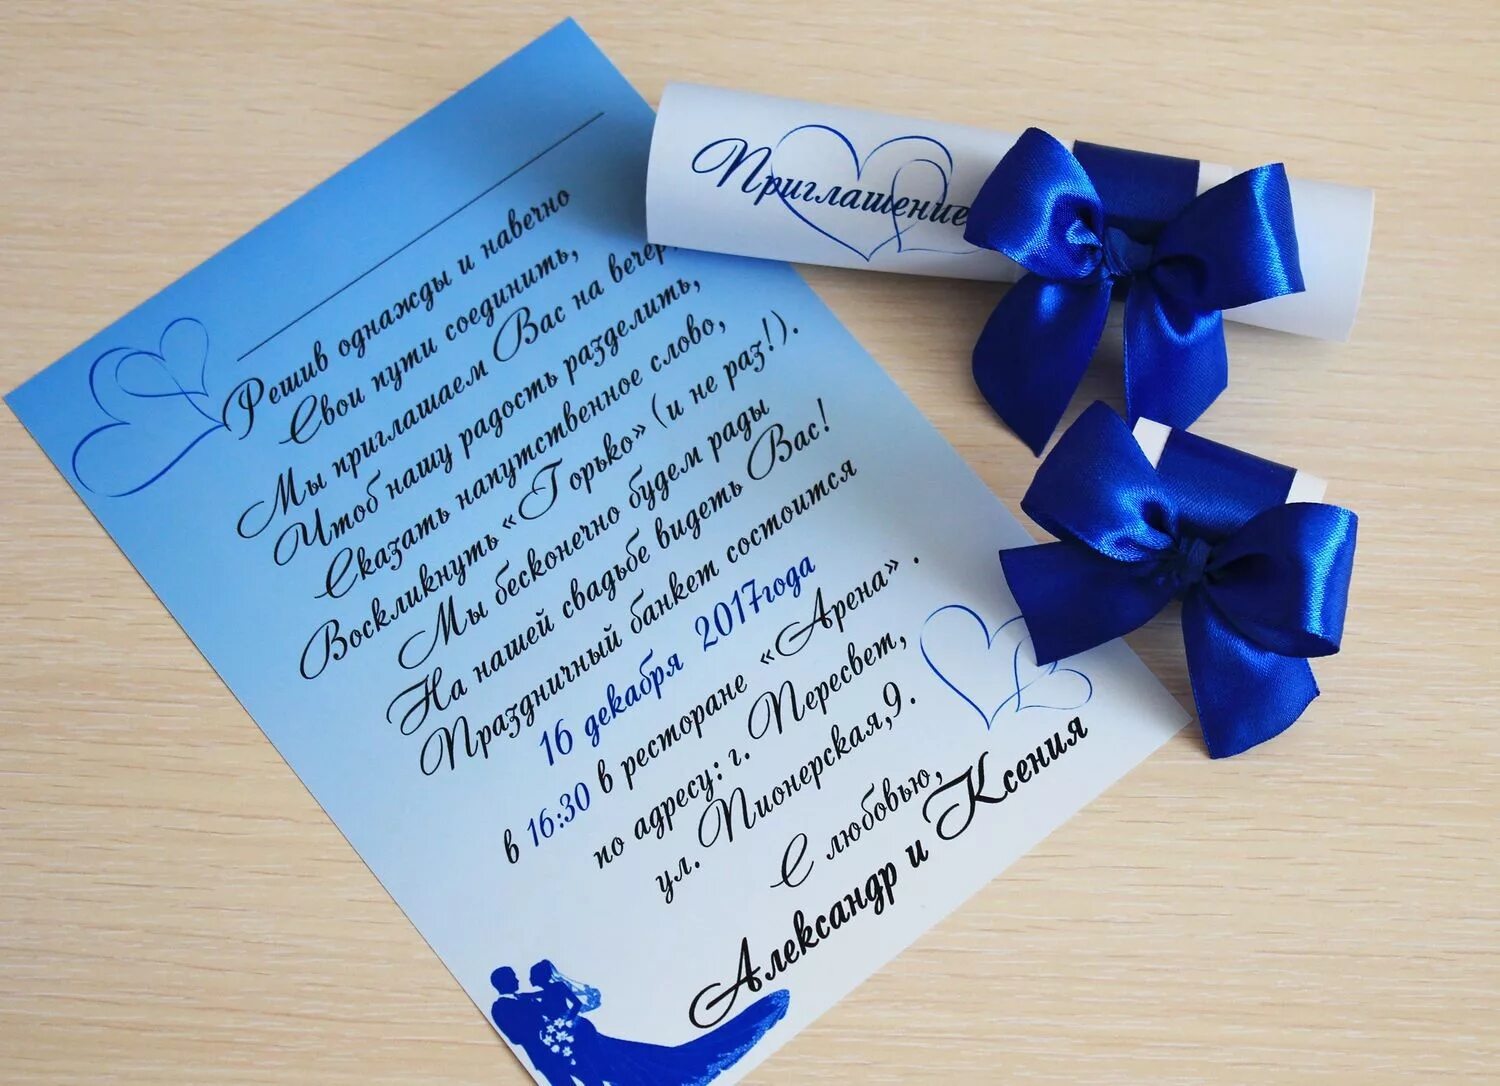 Приглашение
Решив однажды и навечно
Свои пути соединить,
Мы приглашаем Вас на вечер,
Чтоб нашу радость разделить,
Сказать напутственное слово,
Воскликнуть «Горько» (и не раз!).
Мы бесконечно будем рады
На нашей свадьбе видеть Вас!
Праздничный банкет состоится
16 декабря 2017года
в 16:30 в ресторане «Арена» .
по адресу: г. Пересвет,
ул. Пионерская,9.
С любовью,
Александр и Ксения